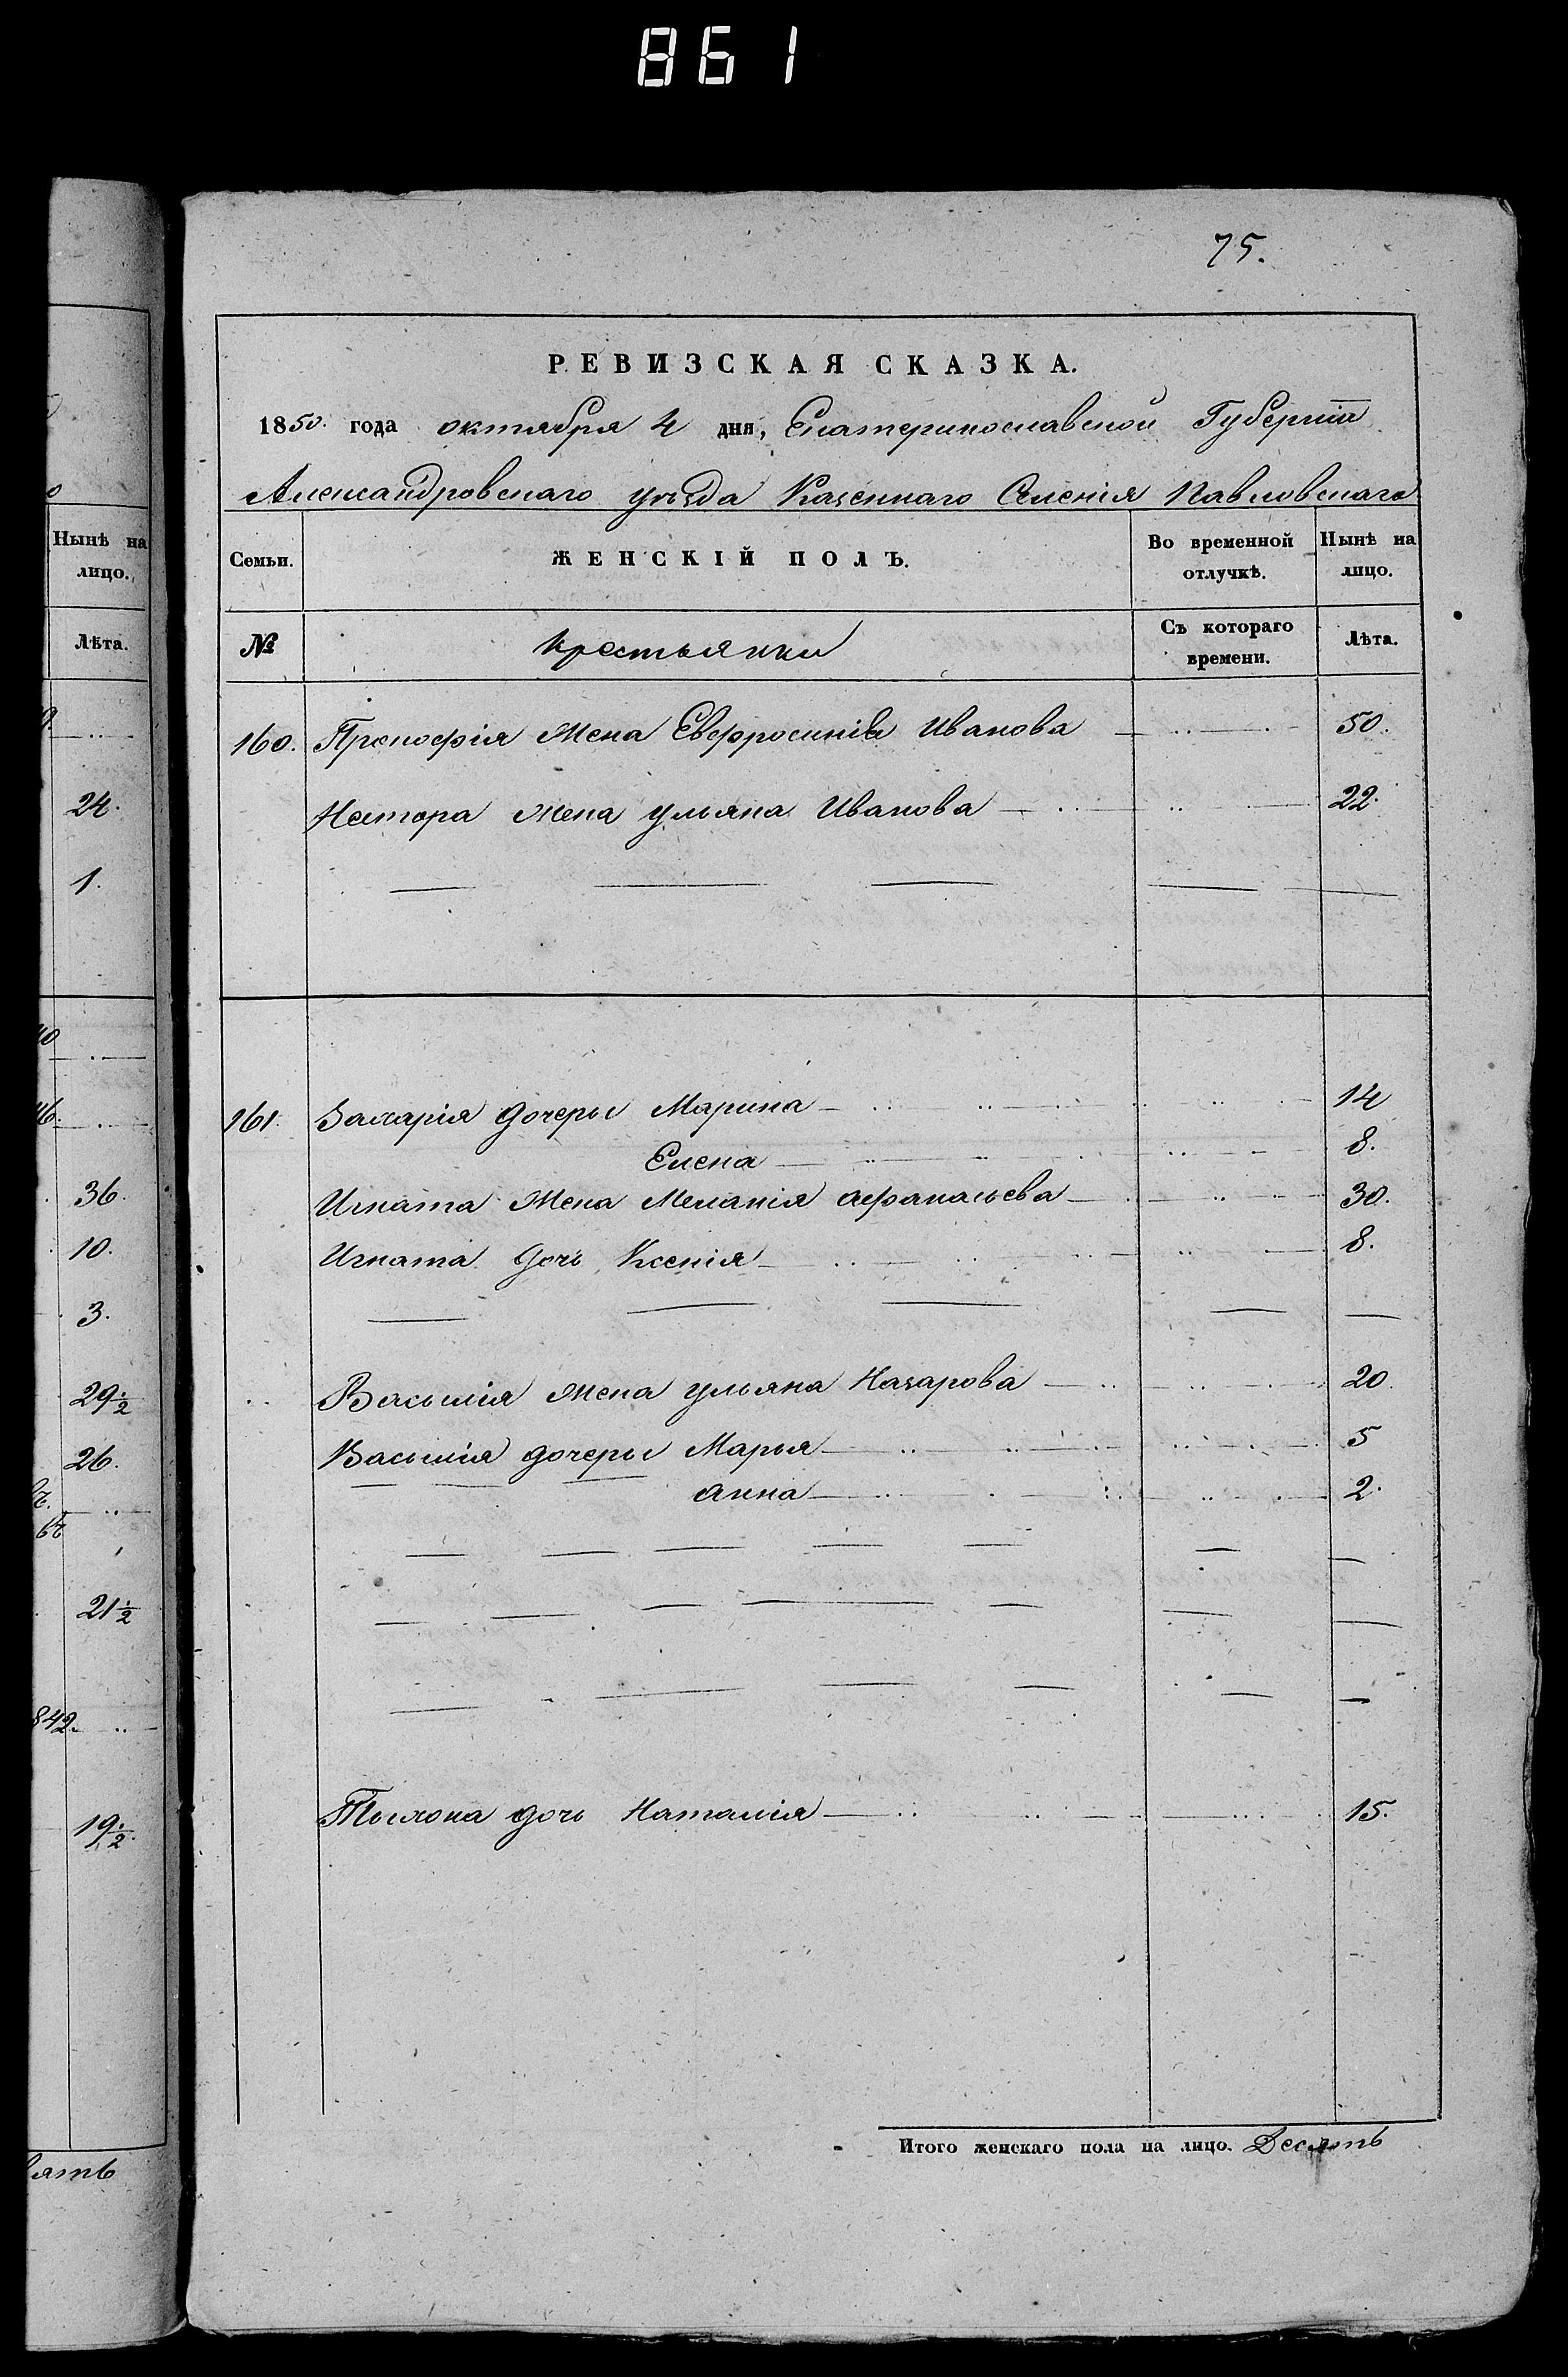 861
75.
РЕВИЗСКАЯ СКАЗКА.
1850. года октября 4 дня, Екатеринославской Губерніи
Александровскаго уѣзда Казеннаго Селенія Павловскаго
Семьи. ЖЕНСКІЙ ПОЛЪ. Во временной отлучкѣ. Нынѣ на лицо.
№ крестьянки Съ котораго времени. Лѣта.
160. Прокофія жена Евфросинія Иванова 50.
Нестора жена Ульяна Иванова 22.
161. Захарія дочеры Марина 14
Елена 8.
Игната жена Меланія Афанасьева 30.
Игната дочь Ксенія 8.
Васылія жена Ульяна Назарова 20
Васылія дочеры Марья 5
Анна 2.
Тыхона дочь Наталія 15.
Итого женскаго пола на лицо. Десять
Нынѣ на
лицо.
Лѣта.
24.
1.
36.
10.
3.
29 1/2
26.
21 1/2
842.
19 1/2